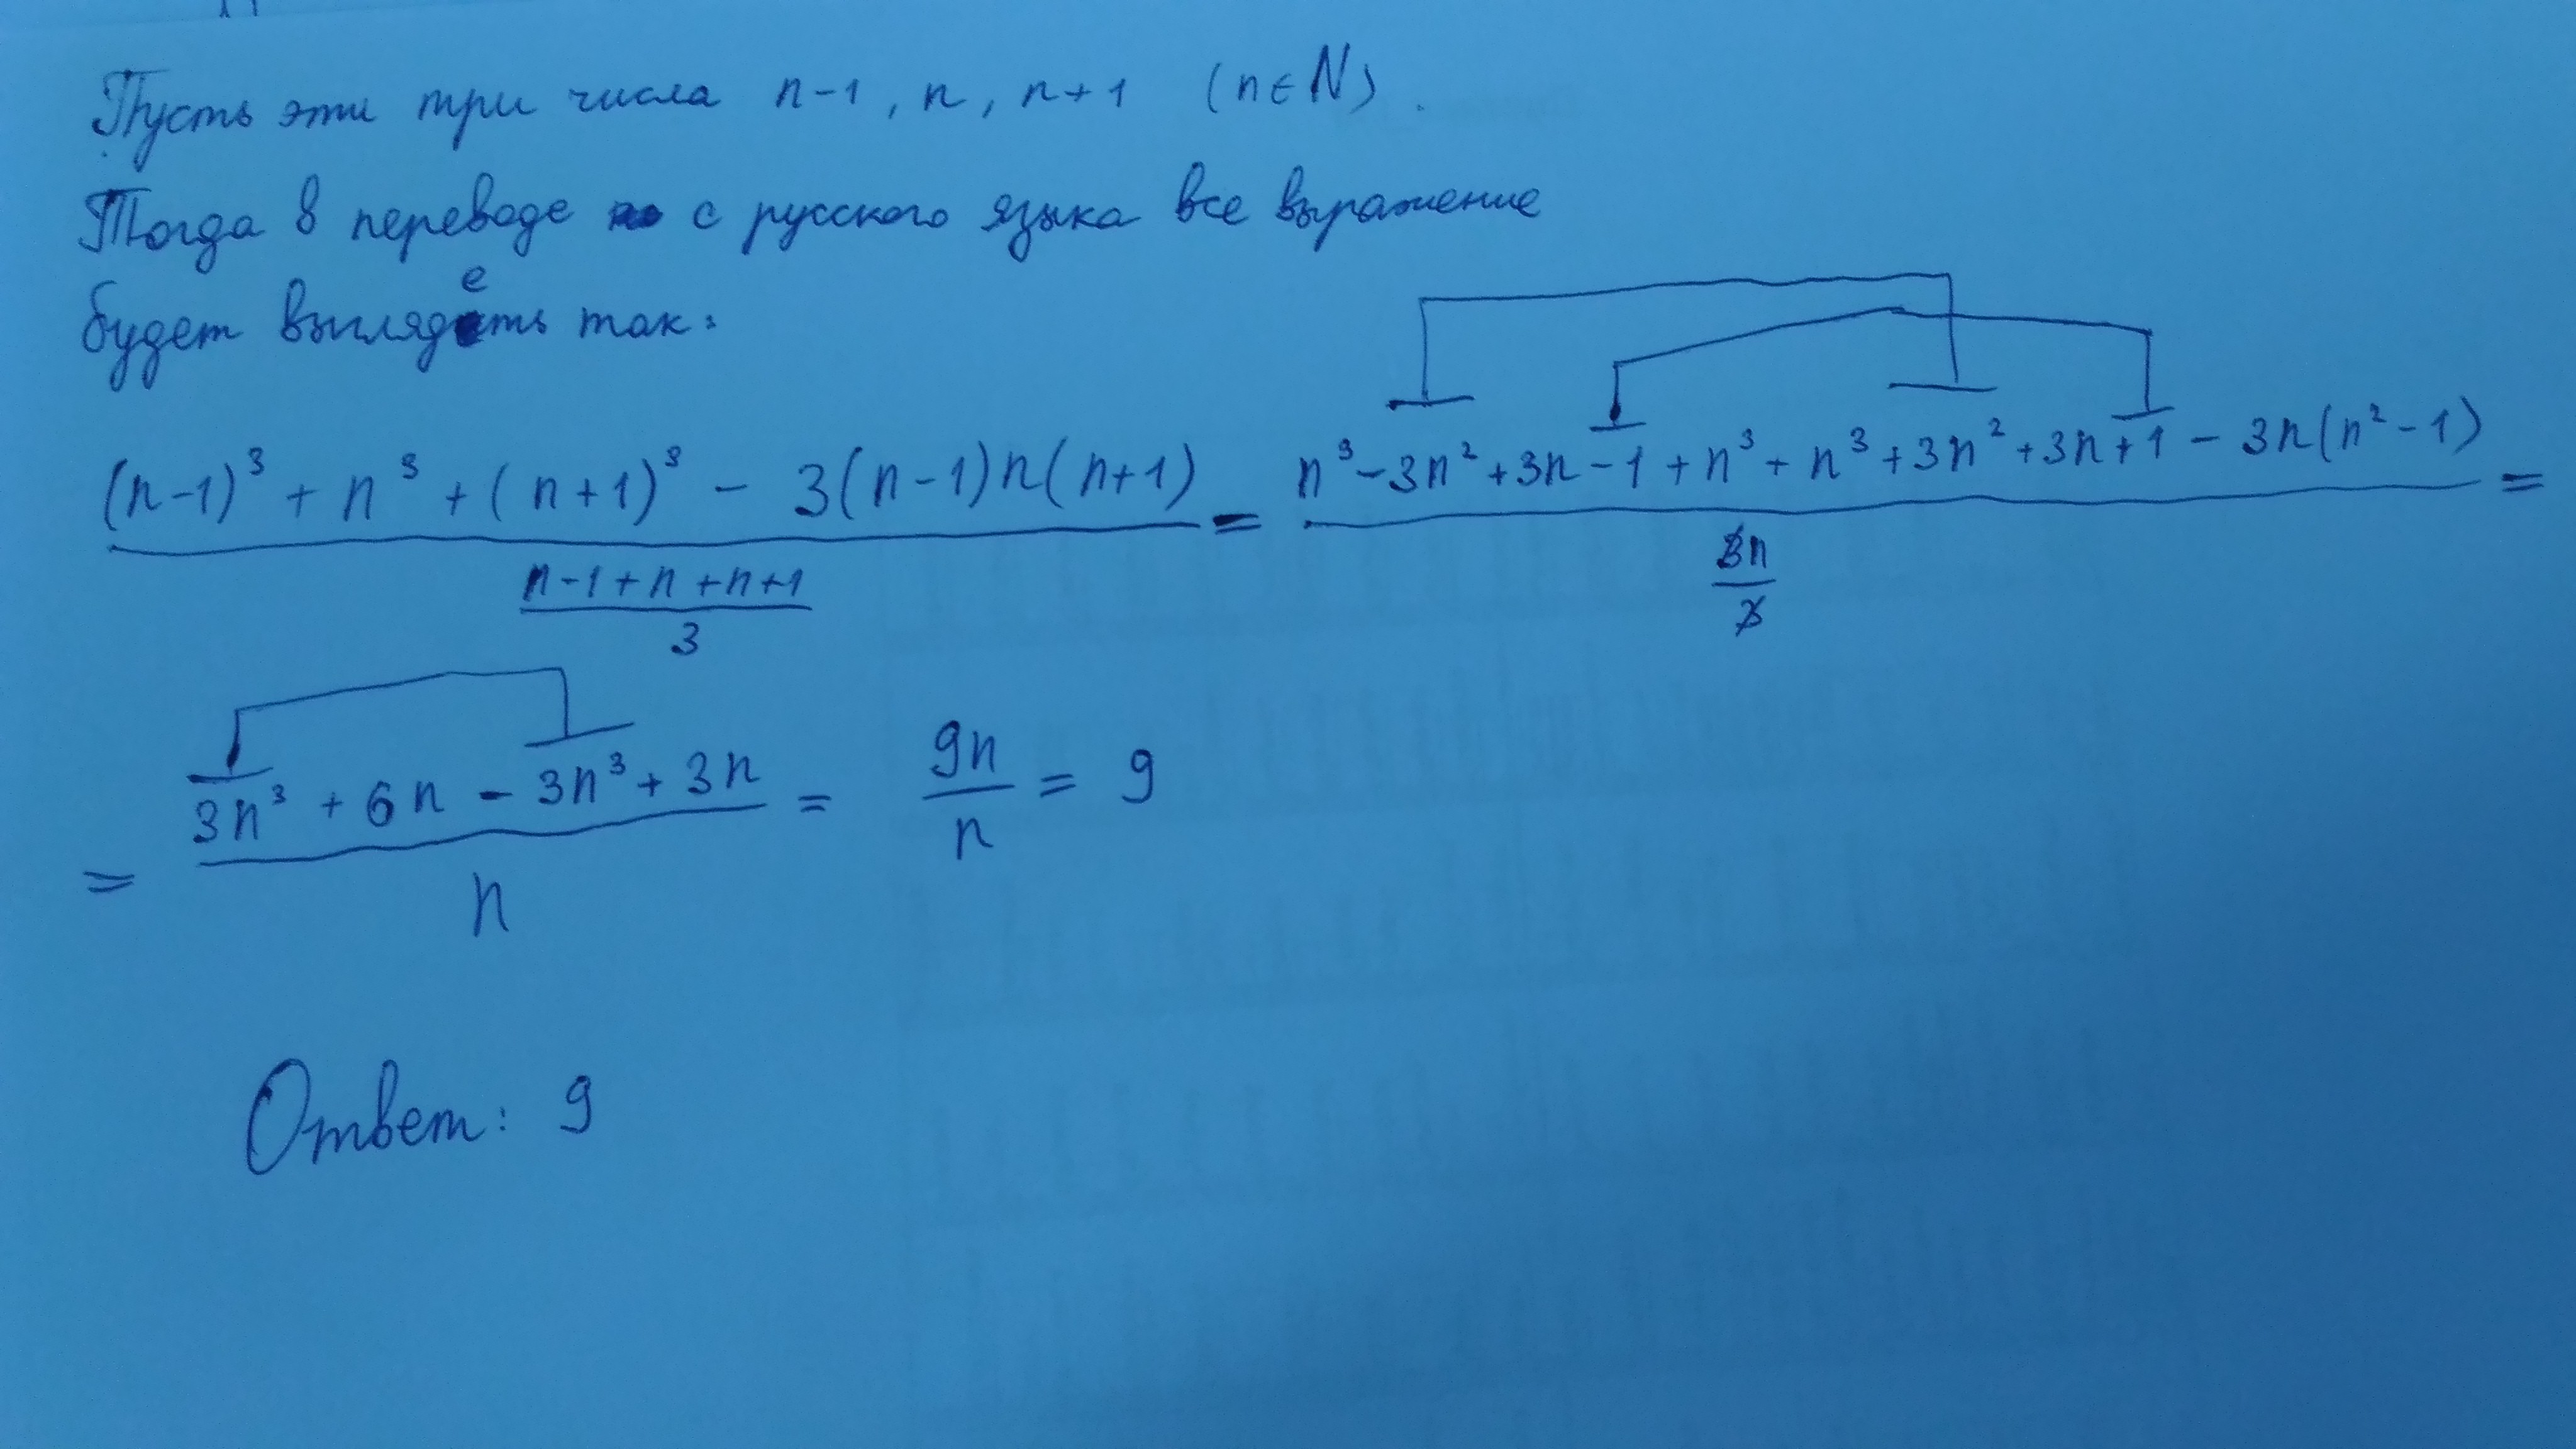 Пусть эти три числа n-1, n, n+1 (n∈N).
Тогда в переводе с русского языка все выражение
будет выглядеть так:
((n-1)³ + n³ + (n+1)³ - 3(n-1)n(n+1)) / ((n-1+n+n+1)/3) = (n³-3n²+3n-1+n³+n³+3n²+3n+1-3n(n²-1)) / (3n/3) =
= (3n³+6n-3n³+3n) / n = 9n/n = 9
Ответ: 9